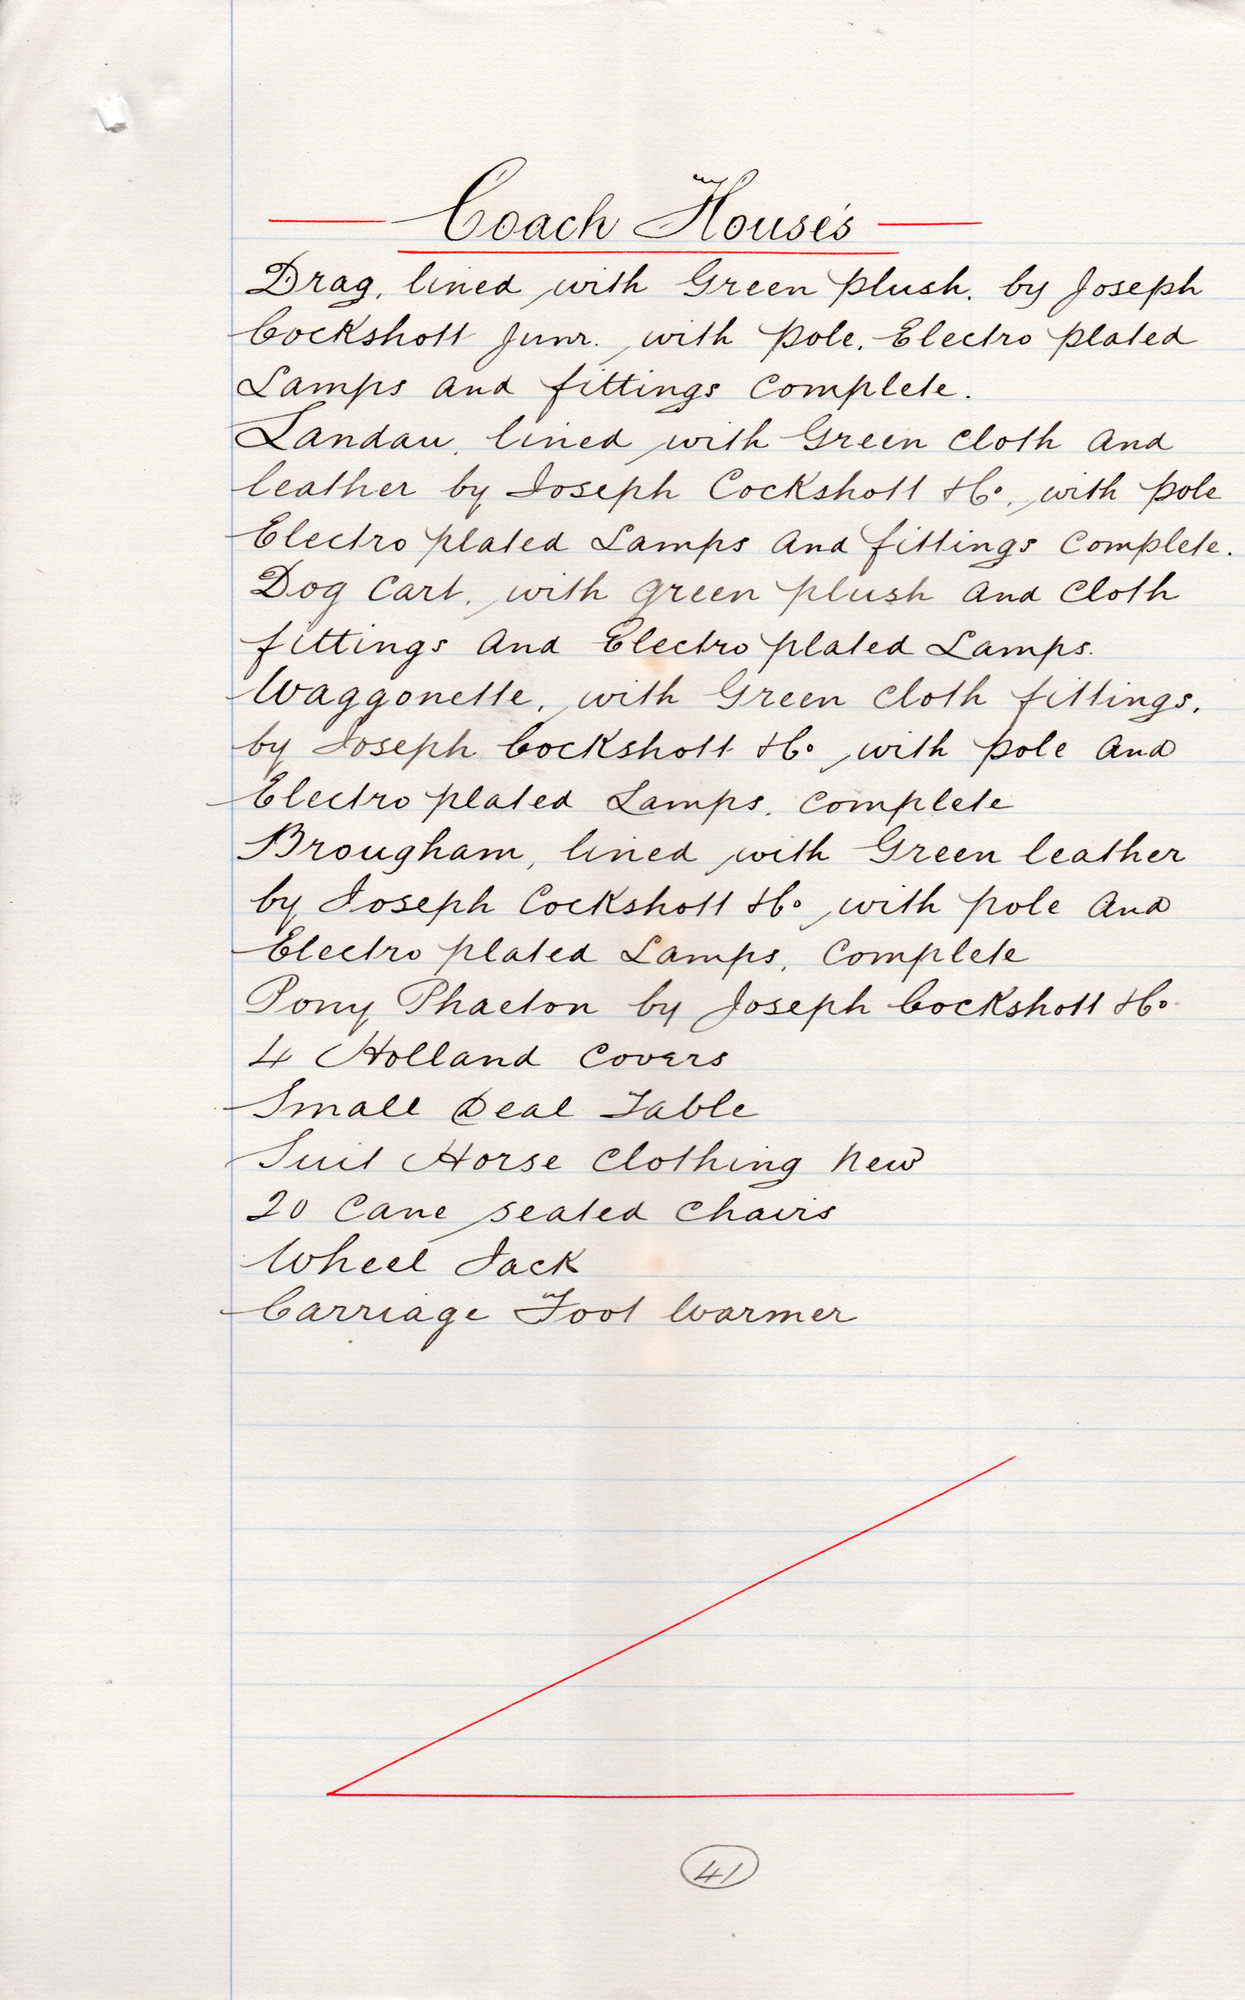 Coach Houses
Drag, lined with Green plush, by Joseph
Cockshott Junr. with pole, Electro plated
Lamps and fittings complete.
Landau, lined with Green cloth and
leather by Joseph Cockshott & Co. with pole
Electro plated Lamps and fittings complete.
Dog Cart, with green plush and cloth
fittings and Electro plated Lamps.
Waggonette, with Green cloth fittings,
by Joseph Cockshott & Co with pole and
Electro plated Lamps, complete
Brougham, lined with Green leather
by Joseph Cockshott & Co with pole and
Electro plated Lamps, complete
Pony Phaeton by Joseph Cockshott & Co
4 Holland Covers
Small Deal Table
Suit Horse Clothing New
20 Cane seated chairs
Wheel Jack
Carriage Foot Warmer
41